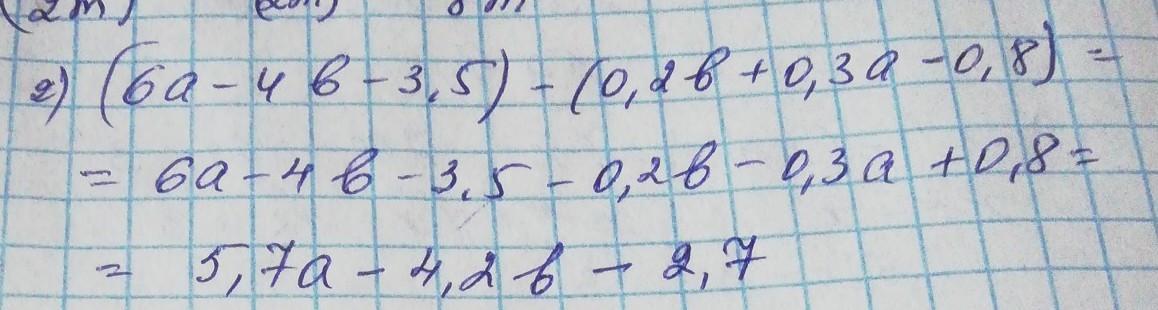 г) (6а - 4в - 3,5) - (0,2в + 0,3а - 0,8) =
= 6а - 4в - 3,5 - 0,2в - 0,3а + 0,8 =
= 5,7а - 4,2в - 2,7